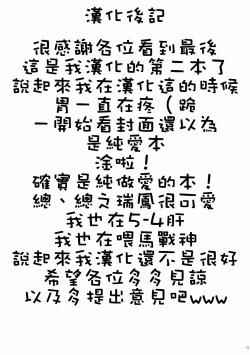 漢化後記
很感謝各位看到最後
這是我漢化的第二本了
說起來我在漢化這的時候
胃一直在疼（跪
一開始看封面還以為
是純愛本
淦啦！
確實是純做愛的本！
總、總之瑞鳳很可愛
我也在5-4肝
我也在喂馬戰神
說起來我漢化還不是很好
希望各位多多見諒
以及多提出意見吧www